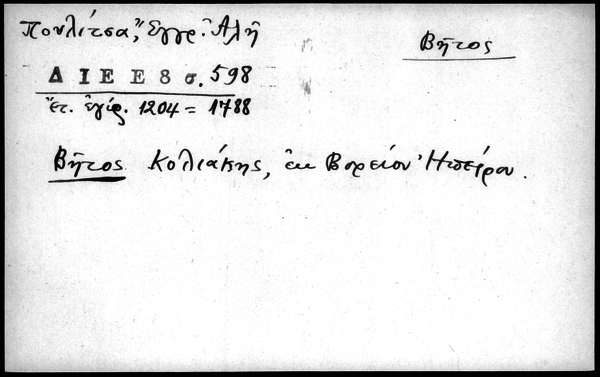 Πουλίτσα, Ἔγγρ. Ἀλῆ
Βῆτος
Δ Ι Ε Ε 8 σ. 598
ἔτ. ἐγίρ. 1204 = 1788
Βῆτος Κολιάκης, ἐκ Βορείου Ἠπείρου.